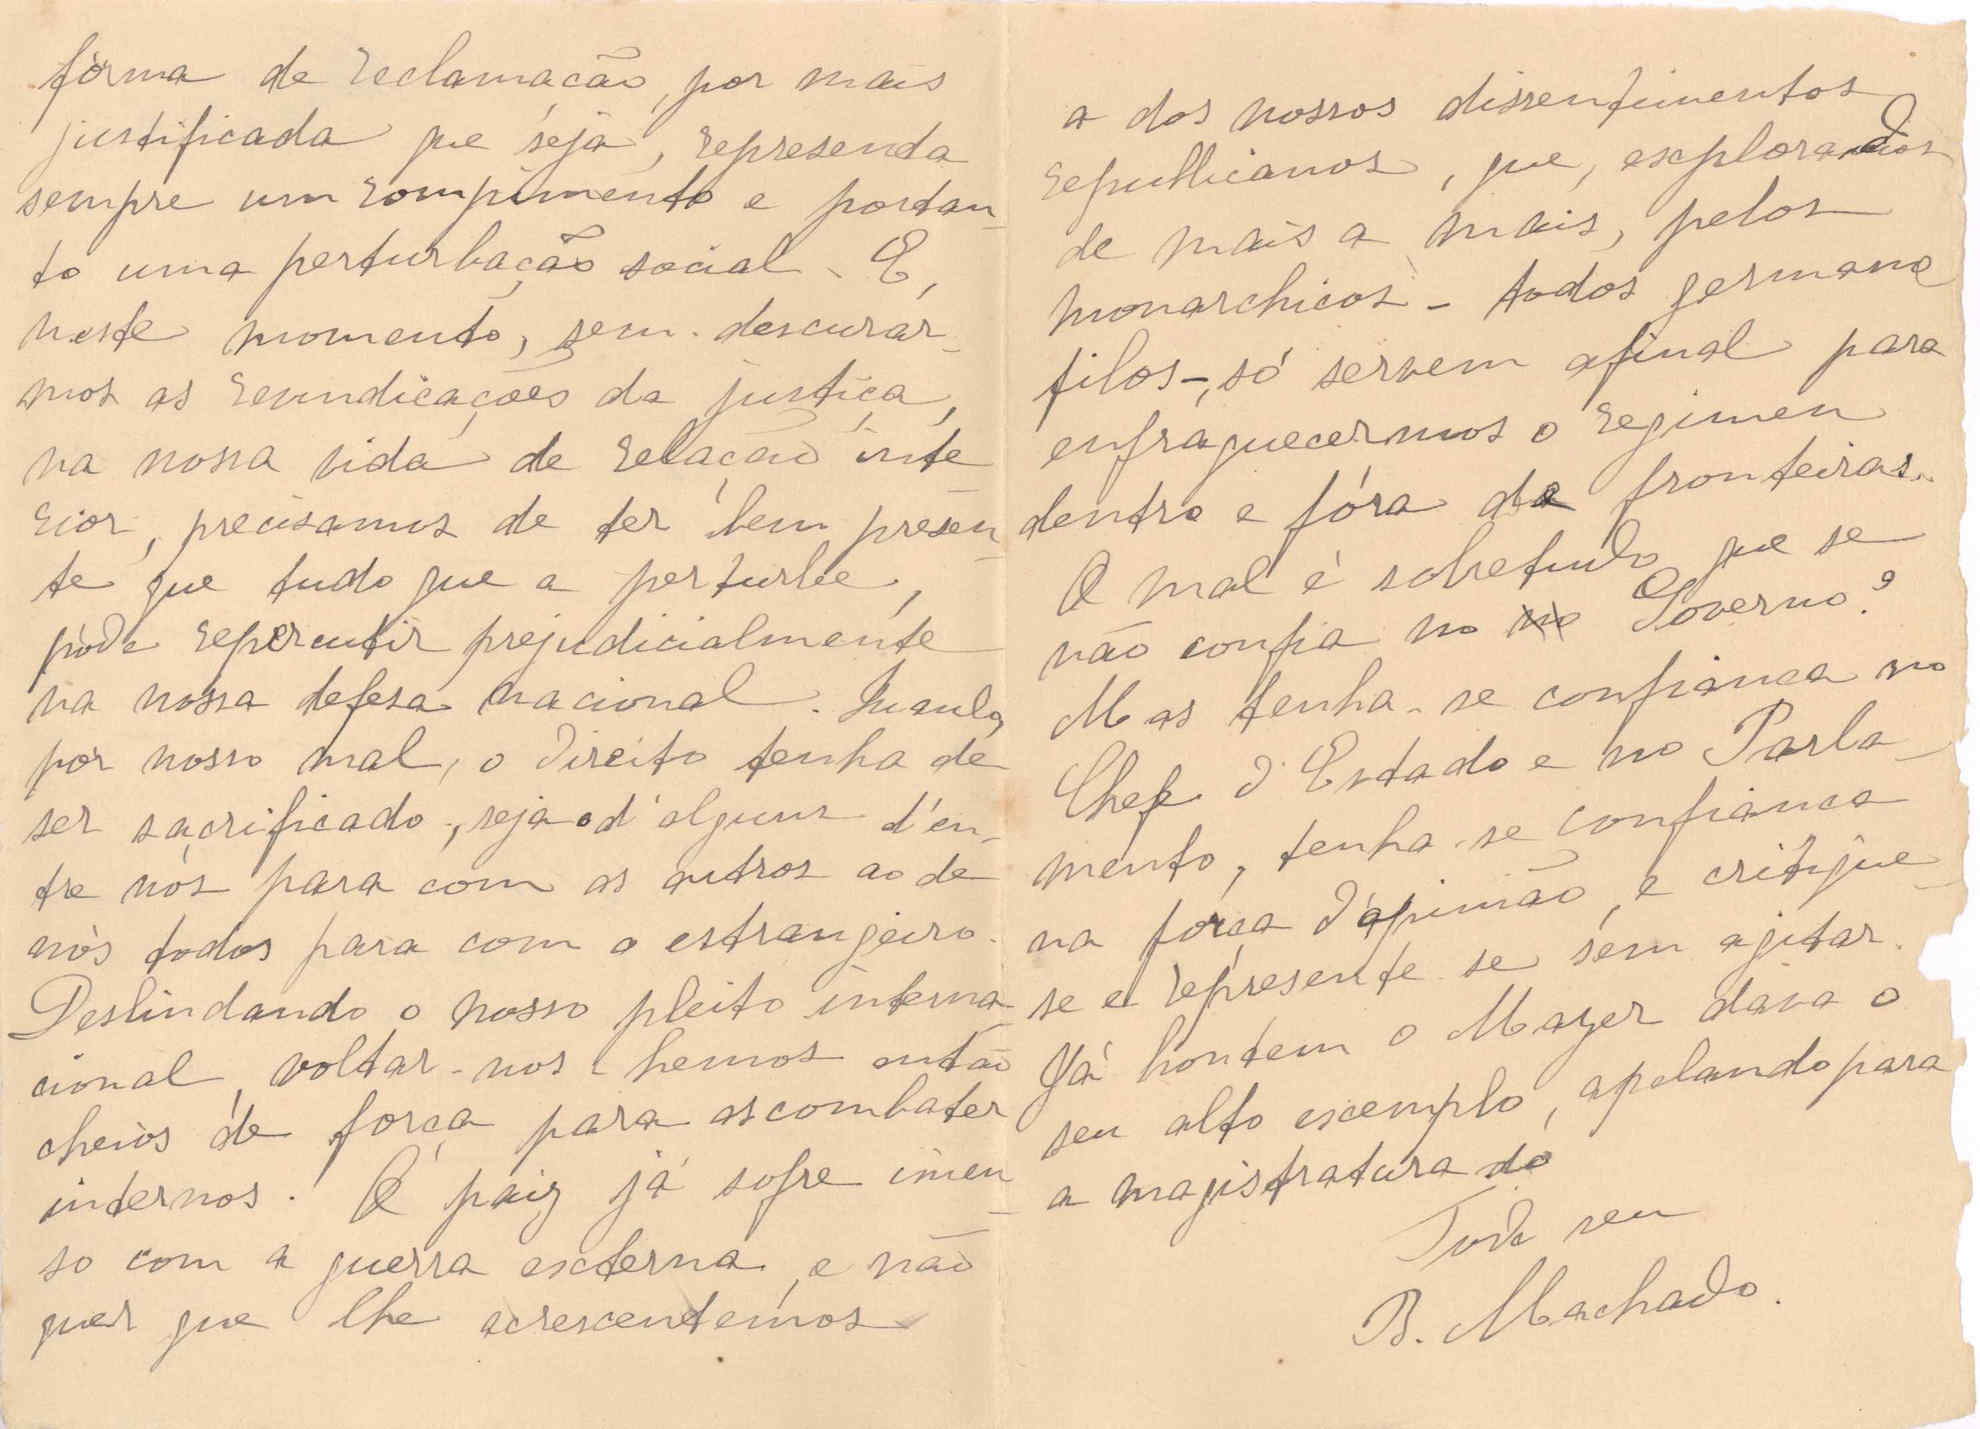 fórma de reclamação, por mais
justificada que seja, representa
sempre um rompimento e portan-
to uma perturbação social. E,
neste momento, sem descurar-
mos as revindicações da justiça,
na nossa vida de relação inte
rior, precisamos de ter bem presen-
te que tudo que a perturbe,
póde repercutir prejudicialmente
na nossa defesa nacional. Quando,
por nosso mal, o direito tenha de
ser sacrificado, seja o d'alguns d'en-
tre nós para com os outros ao de
nós todos para com o estrangeiro.
Deslindando o nosso pleito interna-
cional, voltar-nos-hemos então
cheios de força para os combater
internos. O paiz já sofre imen-
so com a guerra externa, e não
quer que lhe acrescentemos
a dos nossos dissentimentos
republicanos, que, explorados
de mais a mais, pelos
monarchicos - todos germano
filos -, só servem afinal para
enfraquecermos o regimen
dentro e fóra de fronteiras.
O mal é sobretudo que se
não confia no Governo?
Mas tenha-se confiança no
Chefe d'Estado e no Parla-
mento, tenha-se confiança
na força d'opinião, e critique-
se e represente-se sem agitar.
Já hontem o Mayer dava o
seu alto exemplo, apelando para
a magistratura do
Todo seu
B. Machado.